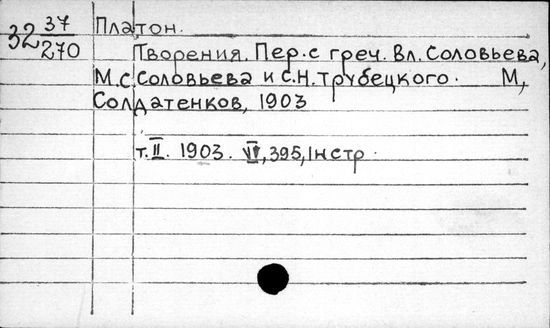 32 37/270 Платон.
Творения. Пер. с греч. Вл. Соловьева,
М.С. Соловьева и С.Н. Трубецкого. М,
Солдатенков, 1903
т. II. 1903. VI, 395, 1 нстр.